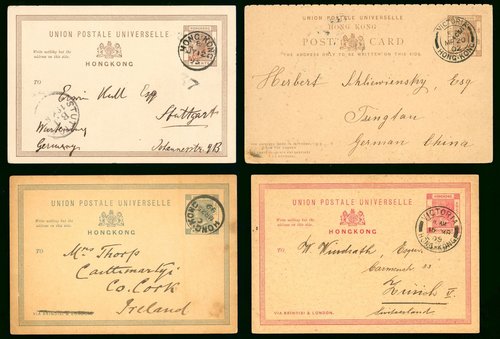 UNION POSTALE UNIVERSELLE
HONGKONG
Write nothing but the
address on this side.
TO
HONG-KONG
Erwin
Esq
Stuttgart
Wurtemburg
Germany
UNION POSTALE UNIVERSELLE
HONG KONG
POST CARD
(THE ADDRESS ONLY TO BE WRITTEN ON THIS SIDE)
VICTORIA
HONG-KONG
Herbert Schliewiensky, Esq
Tsingtau
German China
UNION POSTALE UNIVERSELLE
HONGKONG
Write nothing but the
address on this side.
TO
HONG KONG
Mrs Thorp
Co. Cork
Ireland
VIA BRINDISI & LONDON.
UNION POSTALE UNIVERSELLE
HONGKONG
Write nothing but the
address on this side.
TO
VICTORIA
HONG-KONG
W. Windrath, Esquire
Zürich V.
Switzerland
VIA BRINDISI & LONDON.